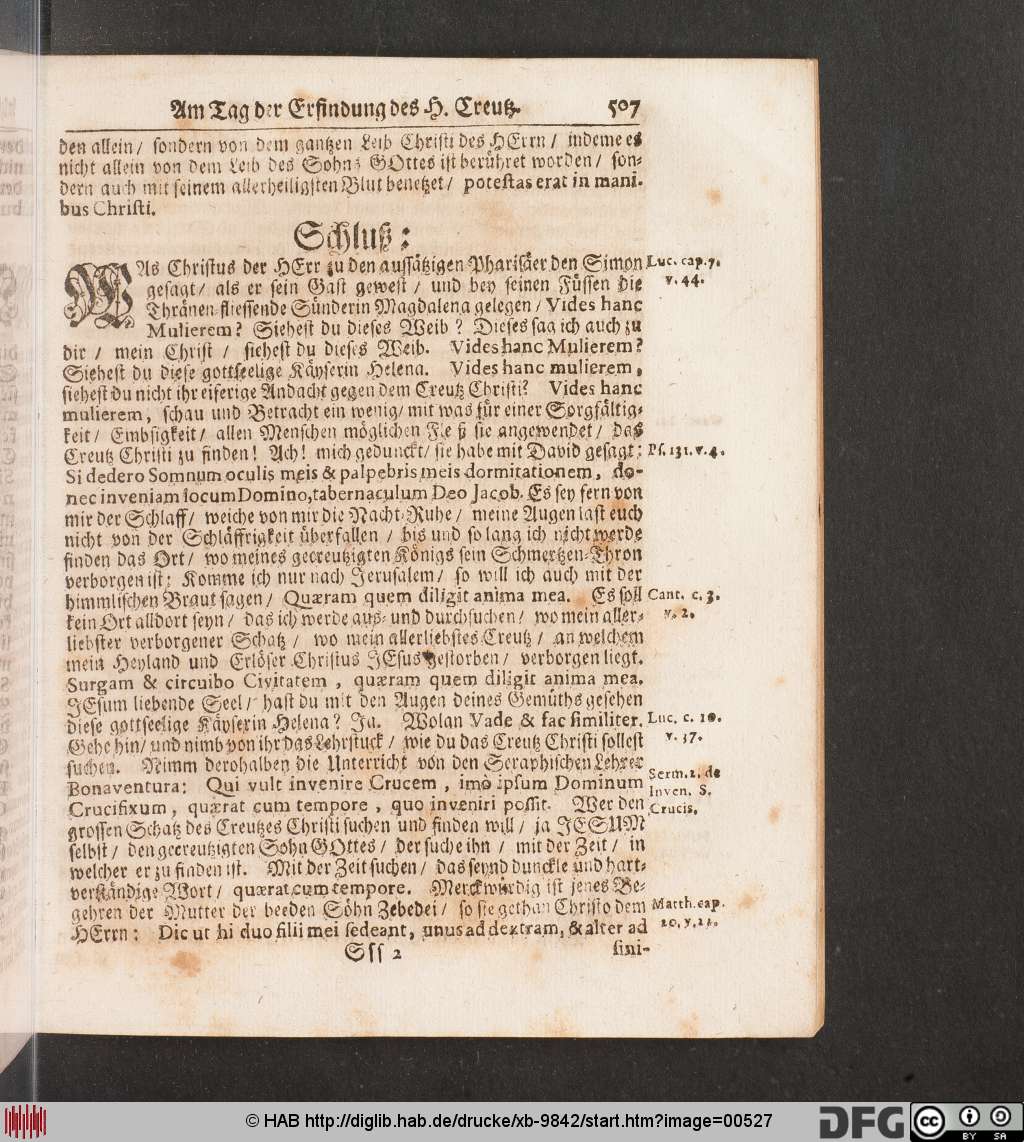 Am Tag der Erfindung des H. Creutz. 507
den allein / sondern von dem gantzen Leib Christi des HErrn / indeme es
nicht allein von dem Leib des Sohns GOttes ist berühret worden / son-
dern auch mit seinem allerheiligsten Blut benetzet / potestas erat in mani-
bus Christi.
Schluß:
WAs Christus der HErr zu den aussätzigen Phariſäer den Simon
Luc. cap. 7.
gesagt / als er sein Gast gewest / und bey seinen Füssen die
v. 44.
Thränen-fliessende Sünderin Magdalena gelegen / Vides hanc
Mulierem? Siehest du dieses Weib? Dieses sag ich auch zu
dir / mein Christ / siehest du dieses Weib. Vides hanc Mulierem?
Siehest du diese gottseelige Käyserin Helena. Vides hanc mulierem,
siehest du nicht ihr eiferige Andacht gegen dem Creutz Christi? Vides hanc
mulierem, schau und Betracht ein wenig / mit was für einer Sorgfältig-
keit / Embsigkeit / allen Menschen möglichen Fleiß sie angewendet / das
Creutz Christi zu finden! Ach! mich gedunckt / sie habe mit David gesagt:
Ps. 131. v. 4.
Si dedero Somnum oculis meis & palpebris meis dormitationem, do-
nec inveniam locum Domino, tabernaculum Deo Jacob. Es sey fern von
mir der Schlaff / weiche von mir die Nacht-Ruhe / meine Augen last euch
nicht von der Schläffrigkeit überfallen / bis und so lang ich nicht werde
finden das Ort / wo meines gecreutzigten Königs sein Schmertzen-Thron
verborgen ist: Komme ich nur nach Jerusalem / so will ich auch mit der
himmlischen Braut sagen / Quæram quem diligit anima mea. Es soll
Cant. c. 3.
kein Ort alldort seyn / das ich werde aus- und durchsuchen / wo mein aller-
v. 2.
liebster verborgener Schatz / wo mein allerliebstes Creutz / an welchem
mein Heyland und Erlöser Christus JEsus gestorben / verborgen liegt.
Surgam & circuibo Civitatem, quæram quem diligit anima mea.
JEsum liebende Seel / hast du mit den Augen deines Gemüths gesehen
diese gottseelige Käyserin Helena? Ja. Wolan Vade & fac similiter.
Luc. c. 10.
Gehe hin / und nimb von ihr das Lehrstuck / wie du das Creutz Christi sollest
v. 37.
suchen. Nimm derohalben die Unterricht von den Seraphischen Lehrer
Serm. 2. de
Bonaventura: Qui vult invenire Crucem, imò ipsum Dominum
Inven. S.
Crucifixum, quærat cum tempore, quo inveniri possit. Wer den
Crucis.
grossen Schatz des Creutzes Christi suchen und finden will / ja JESUM
selbst / den gecreutzigten Sohn GOttes / der suche ihn / mit der Zeit / in
welcher er zu finden ist. Mit der Zeit suchen / das seynd dunckle und hart-
verständige Wort / quærat cum tempore. Merckwürdig ist jenes Be-
gehren der Mutter der beeden Söhn Zebedei / so sie gethan Christo dem
Matth. cap.
HErrn: Dic ut hi duo filii mei sedeant, unus ad dextram, & alter ad
20. v. 21.
Sss 2 sini-
© HAB http://diglib.hab.de/drucke/xb-9842/start.htm?image=00527
DFG cc BY SA